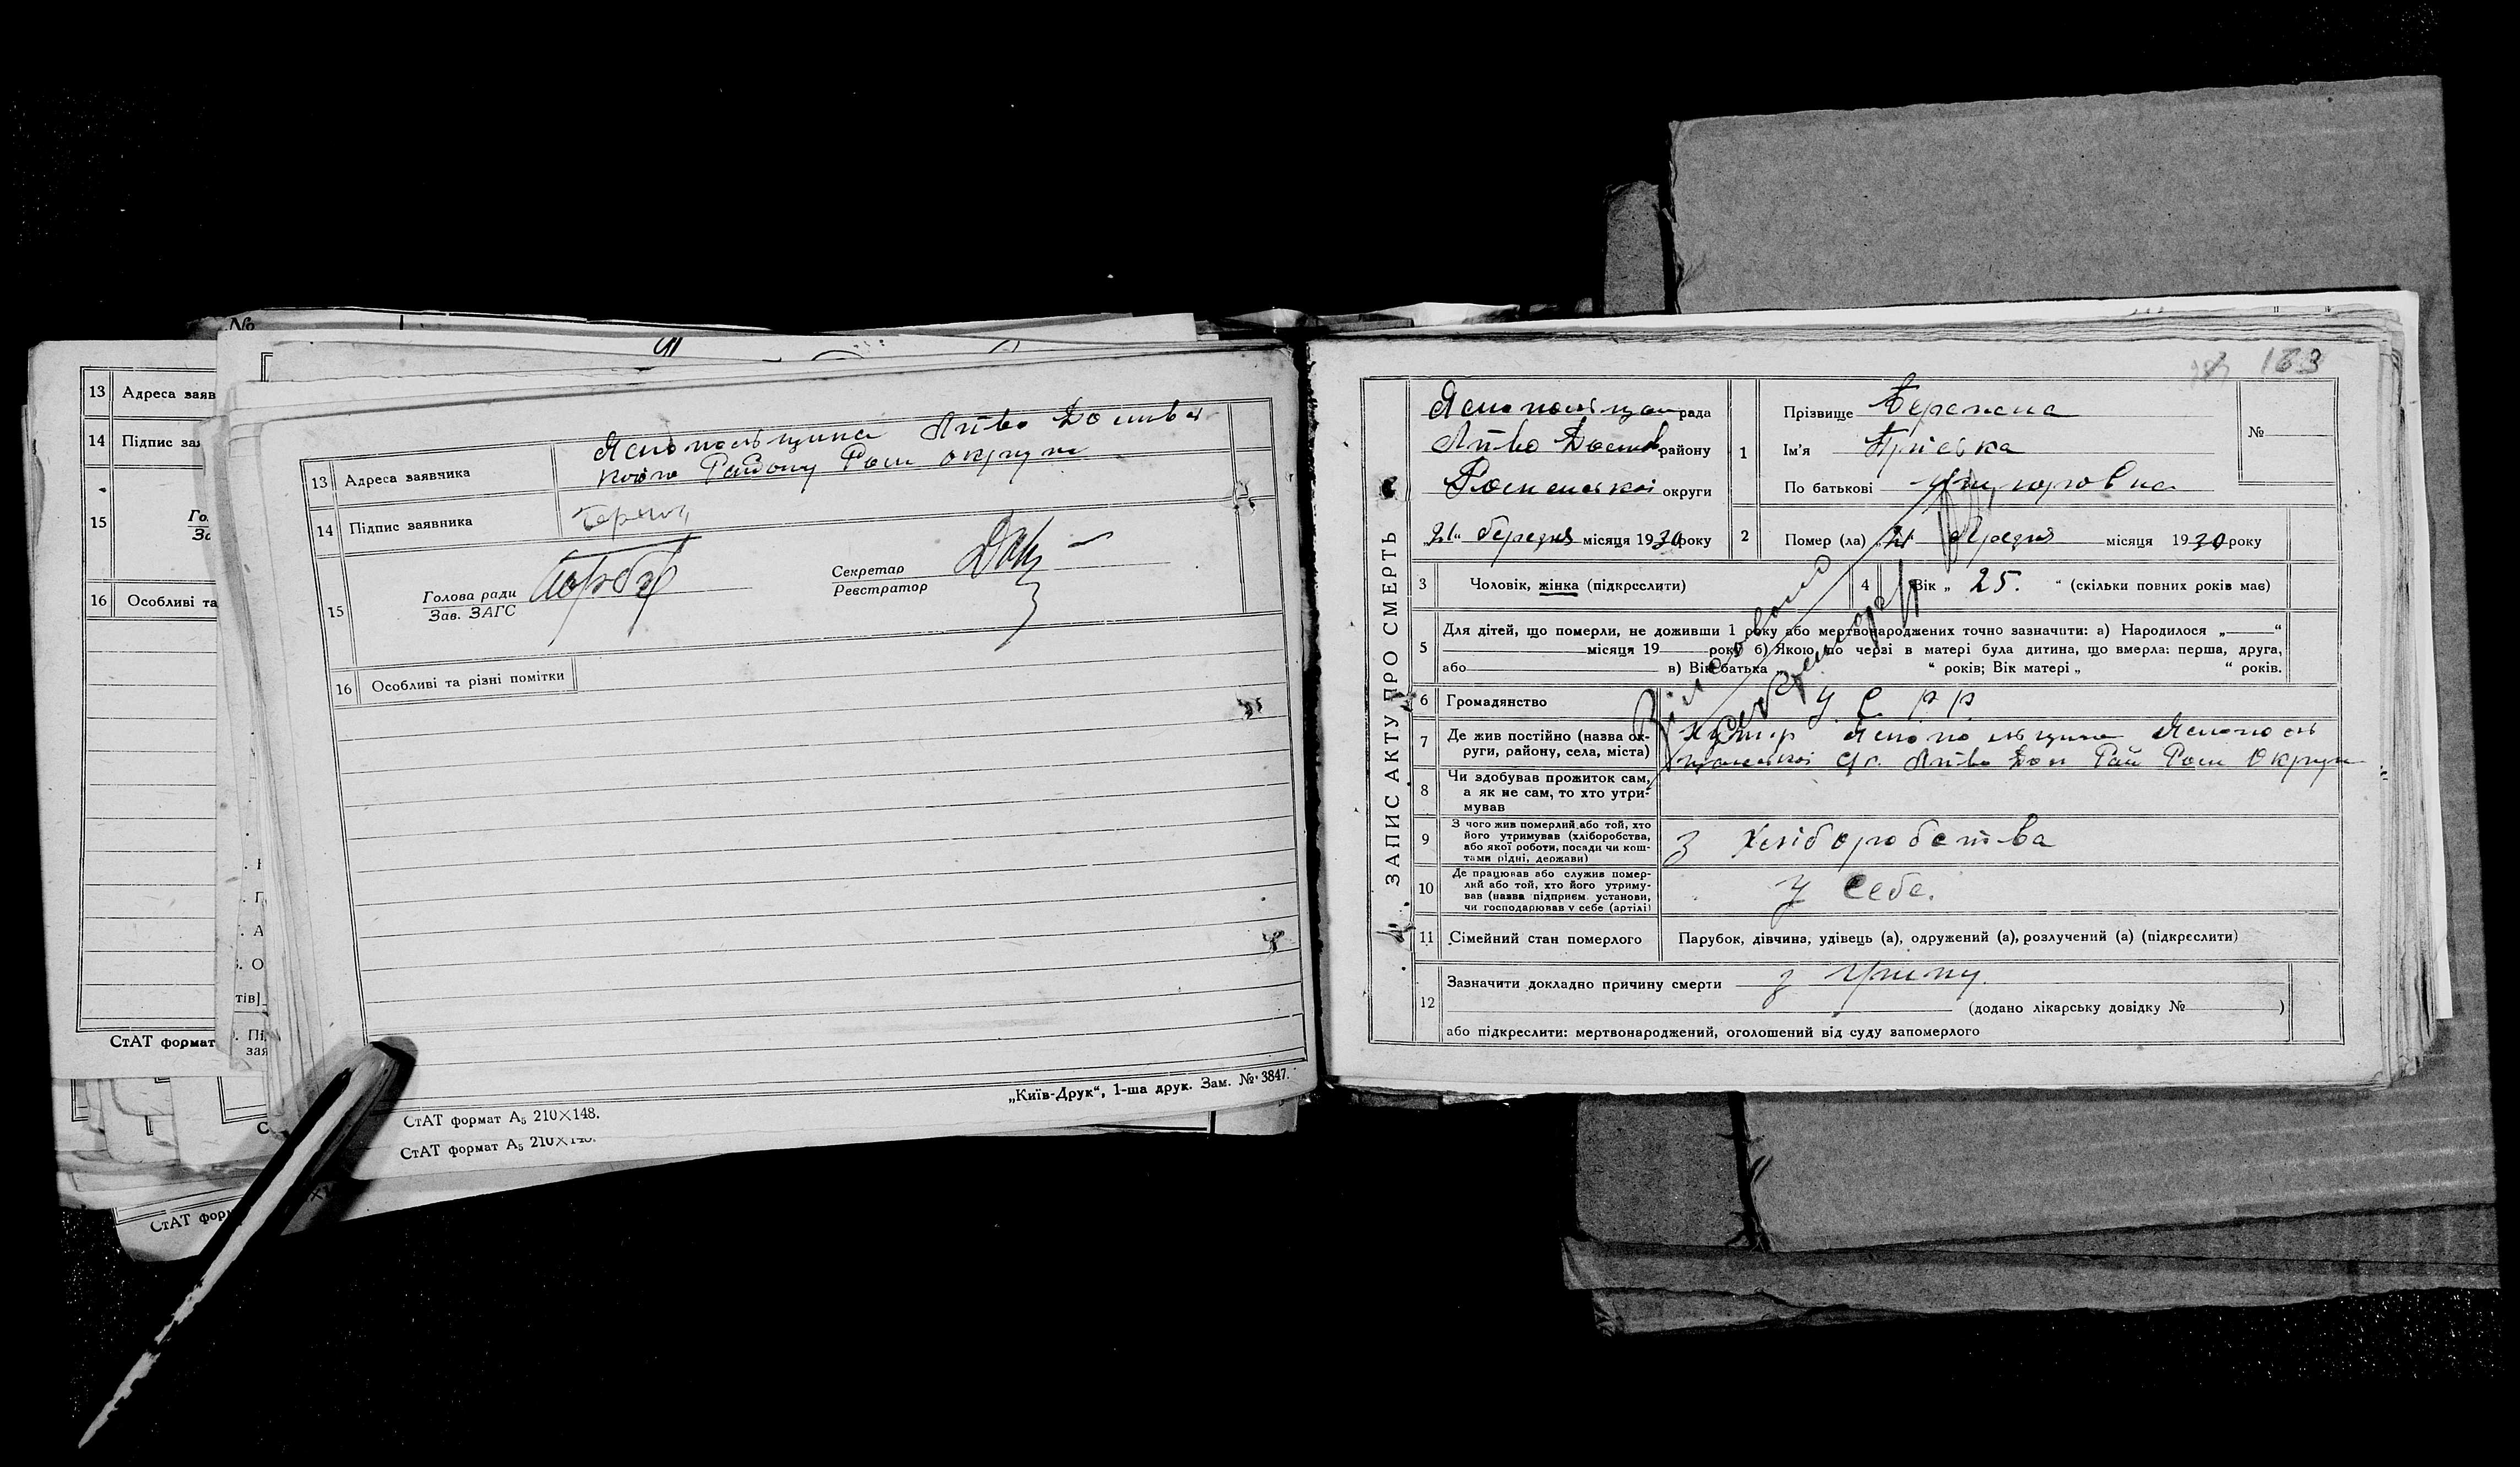 №
13 Адреса заяв
14 Підпис зая
15
16 Особливі та
СтАТ формат
13 Адреса заявчика
Яснопольщина Липво Долинсь
кого Району Ром округи
14 Підпис заявника
15 Голова ради
Зав. ЗАГС
Секретар
Реєстратор
16 Особливі та різні помітки
СтАТ формат А₅ 210×148.
„Київ-Друк“, 1-ша друк. Зам. № 3847.
СтАТ формат А₅ 210×148.
СтАТ форм
163
ЗАПИС АКТУ ПРО СМЕРТЬ
рада
району
Роменської округи
„21“ березня місяця 1930 року
1 Прізвище
Ім'я Пріська
По батькові
№
2 Помер (ла) „21“ березня місяця 1930 року
3 Чоловік, жінка (підкреслити)
4 Вік „ 25. “ (скільки повних років має)
5 Для дітей, що померли, не доживши 1 року або мертвонароджених точно зазначити: а) Народилося „ “
місяця 19 року б) Якою по черзі в матері була дитина, що вмерла: перша, друга,
або в) Вік батька „ “ років; Вік матері „ “ років.
6 Громадянство У С Р Р
7 Де жив постійно (назва ок-
руги, району, села, міста)
Хутір Яснопольщина Яснополь
8 Чи здобував прожиток сам,
а як не сам, то хто утри-
мував
9 З чого жив померлий або той, хто
його утримував (хліборобства,
або якої роботи, посади чи кош-
тами рідні, держави)
З Хліборобства
10 Де працював або служив помер-
лий або той, хто його утриму-
вав (назва підприєм. установи,
чи господарював у себе (артілі)
У себе.
11 Сімейний стан померлого
Парубок, дівчина, удівець (а), одружений (а), розлучений (а) (підкреслити)
12 Зазначити докладно причину смерти з грипу.
(додано лікарську довідку № )
або підкреслити: мертвонароджений, оголошений від суду запомерлого